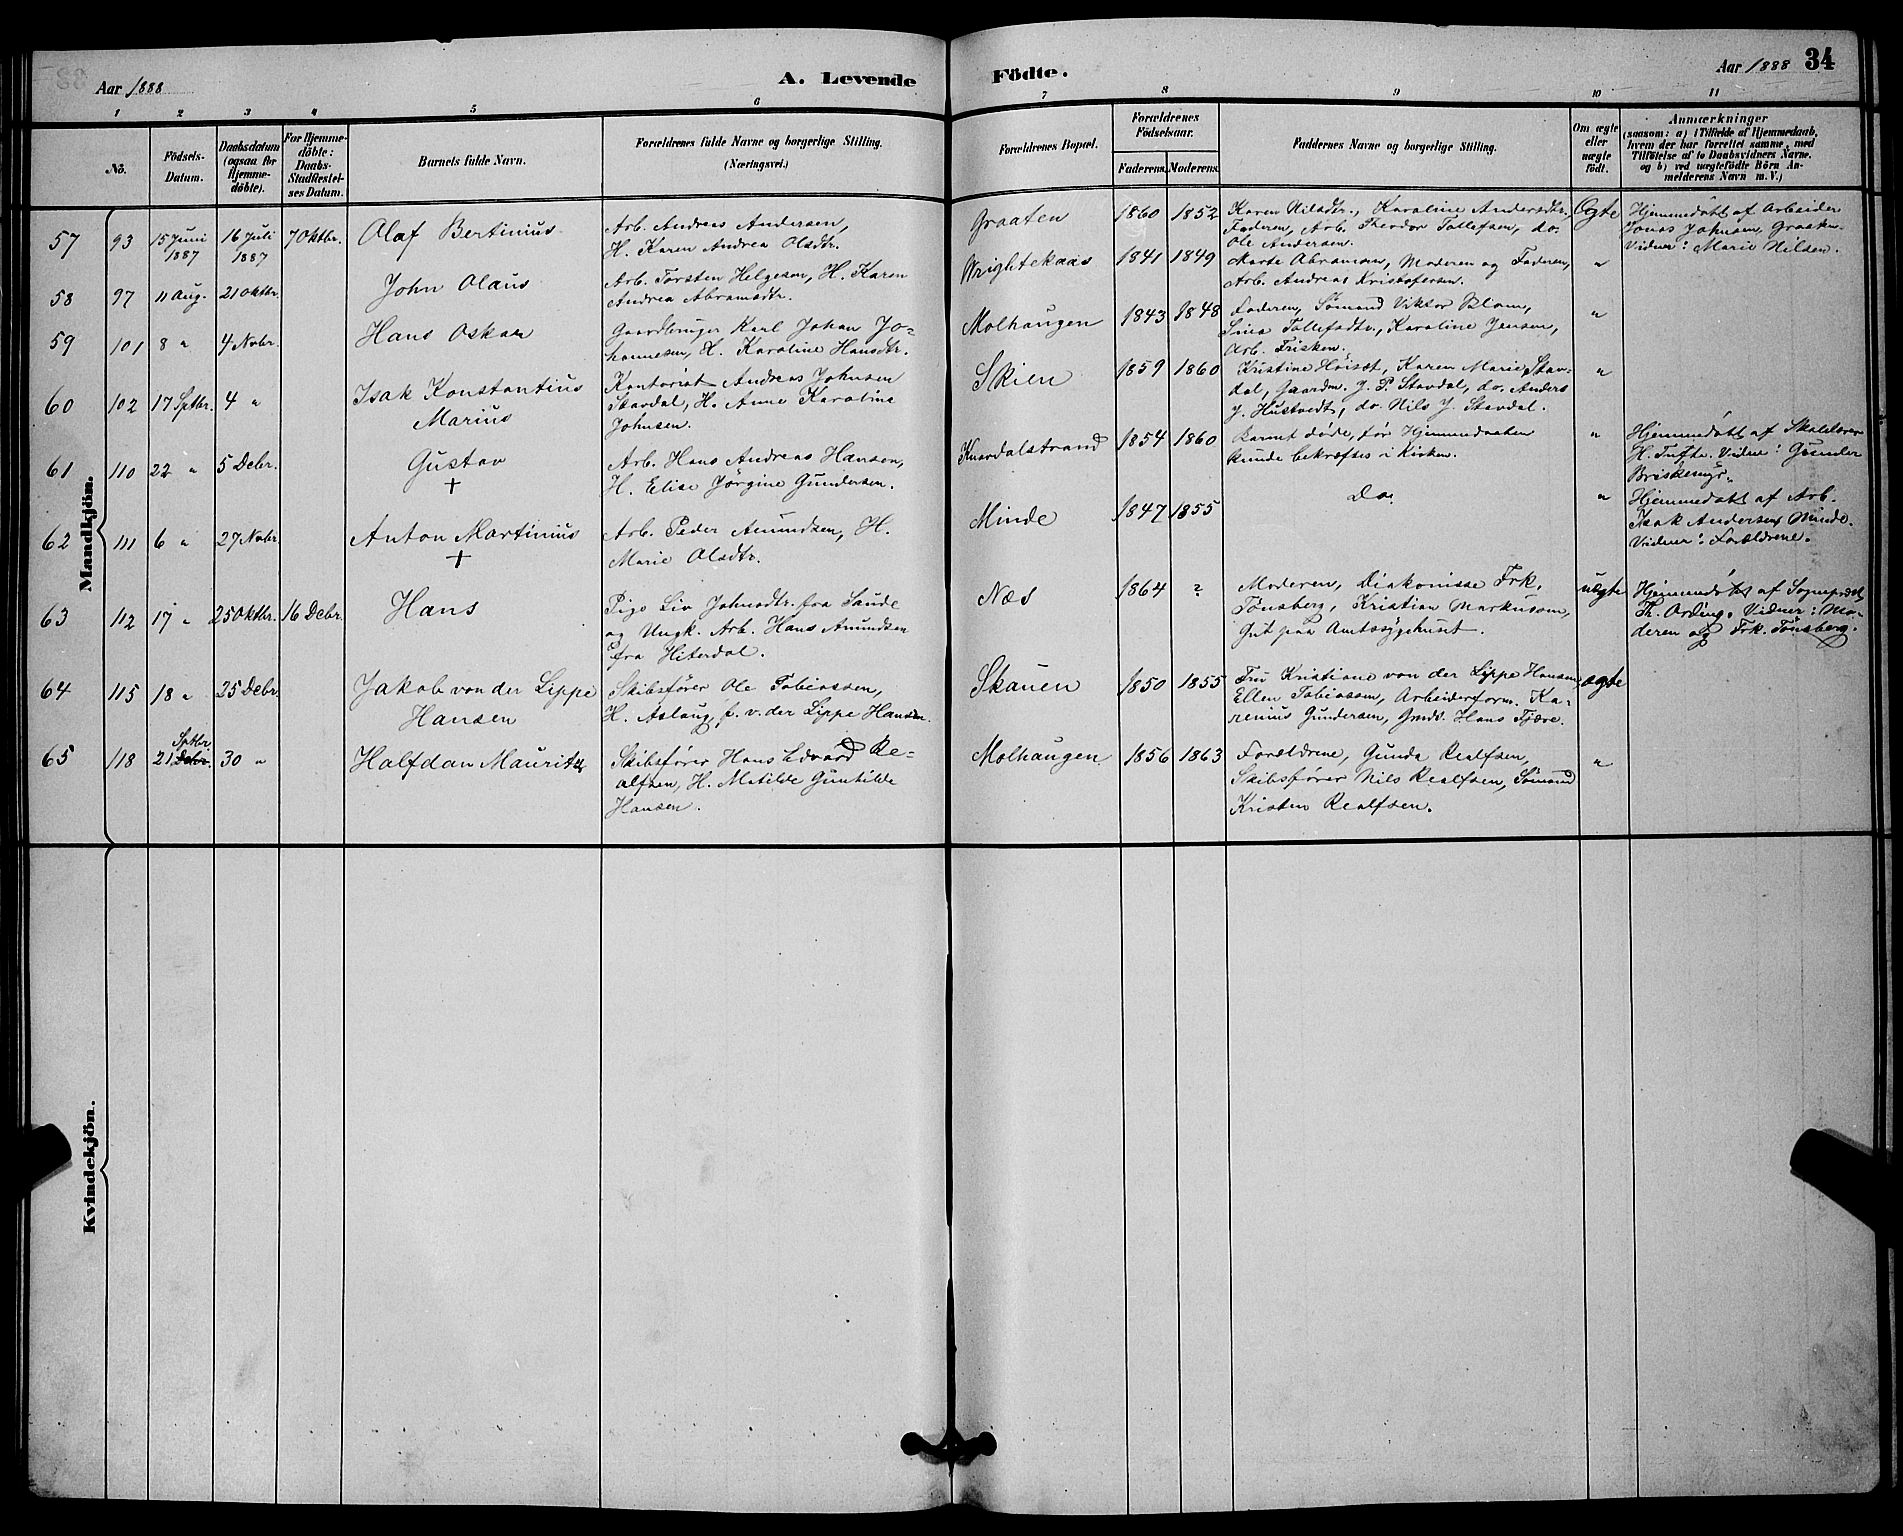 Aar 1888
A. Levende
Födte.
Aar 1888 34
1 2 3 4 5 6 7 8 9 10 11
No.
Födsels-
Datum.
Daabsdatum
(ogsaa for
Hjemme-
döbte).
For Hjemme-
döbte:
Daabs-
Stadfæstel-
ses Datum.
Barnets fulde Navn.
Forældrenes fulde Navne og borgerlige Stilling.
(Næringsvei.)
Forældrenes Bopæl.
Forældrenes
Födselsaar.
Faderens. Moderens.
Faddernes Navne og borgerlige Stilling.
Om ægte
eller
uægte
födt.
Anmærkninger
(saasom: a) i Tilfælde af Hjemmedaab,
hvem der har forrettet samme, med
Tilföielse af to Daabsvidners Navne.
og b) ved uægtefödte Börn An-
melderens Navn m. V.)
Mandkjön.
57 93 15 Juni 1887 16 Juli 1887 7 Oktbr. Olaf Bertinius
Arb. Andreas Andersen,
H. Karen Andrea Olsdtr.
Graaten 1860 1852
Karen Nilsdtr., Karoline Andersdtr.
Faderen, Arb. Theodor Tollefsen, do.
Ole Andersen.
Ægte
Hjemmedøbt af Arbeider
Jonas Johnsen, Graaten.
Vidner: Marie Nilsen.
58 97 11 Aug. 21 Oktbr. John Olaus
Arb. Torsten Helgesen, H. Karen
Andrea Abramsdtr.
Wrightekaas 1841 1849
Marte Abramsen, Moderen og Faderen,
Arb. Andreas Kristofersen.
"
59 101 8 " 4 Novbr. Hans Oskar
Gaardbruger Karl Johan Jo-
hannesen, H. Karoline Hansdtr.
Molhaugen 1843 1848
Faderen, Sømand Viktor Blom,
Sina Tollefsdtr., Karoline Jensen,
Arb. Frisken.
"
60 102 17 Sptbr. 4 " Isak Konstantius
Marius
Kontorist Andreas Johnsen
Stavdal, H. Anne Karoline
Johnsen.
Skien 1859 1860
Kristine Høisæt, Karen Marie Stav-
dal, Gaardm. J. P. Stavdal, do. Anders
J. Hustvedt, do. Nils J. Stavdal.
"
61 110 22 " 5 Debr. Gustav
+
Arb. Hans Andreas Hansen,
H. Elise Jørgine Gundersen.
Knardalstrand 1854 1860
Barnet døde, før Hjemmedaaben
kunde bekræftes i Kirken.
"
Hjemmedøbt af Skolelærer
H. Tufte. Vidne: Gunder
Briskemyr.
62 111 6 " 27 Nvbr. Anton Martinius
+
Arb. Peder Amundsen, H.
Marie Olsdtr.
Minde 1847 1855
Do.
"
Hjemmedøbt af Arb.
Isak Andersen Minde.
Vidner: Forældrene.
63 112 17 " 25 Oktbr. 16 Debr. Hans
Pige Liv Johnsdtr. fra Saude
og Ungk. Arb. Hans Amundsen
fra Hiterdal.
Næs 1864 ?
Moderen, Diakonisse Frk.
Tønsberg, Kristian Markussen,
Gut paa Amtssygehuset.
uægte
Hjemmedøbt af Sognepræst
Th. Ording. Vidner: Mo-
deren og Frk. Tønsberg.
64 115 18 " 25 Debr. Jakob von der Lippe
Hansen
Skibsfører Ole Tobiassen,
H. Aslaug, f. v. der Lippe Hansen.
Skauen 1850 1855
Fru Kristiane von der Lippe Hansen,
Ellen Tobiassen, Arbeiderform. Ka-
renius Gundersen, Grds. Hans Fjære.
ægte
65 118 21 Sptbr. Debr. 30 " Halfdan Mauritz
Skibsfører Hans Edvard Re-
alfsen, H. Matilde Guntilde
Hansen.
Molhaugen 1856 1863
Forældrene, Gunda Realfsen,
Skibsfører Nils Realfsen, Sømand
Kristen Realfsen.
"
Kvindekjön.